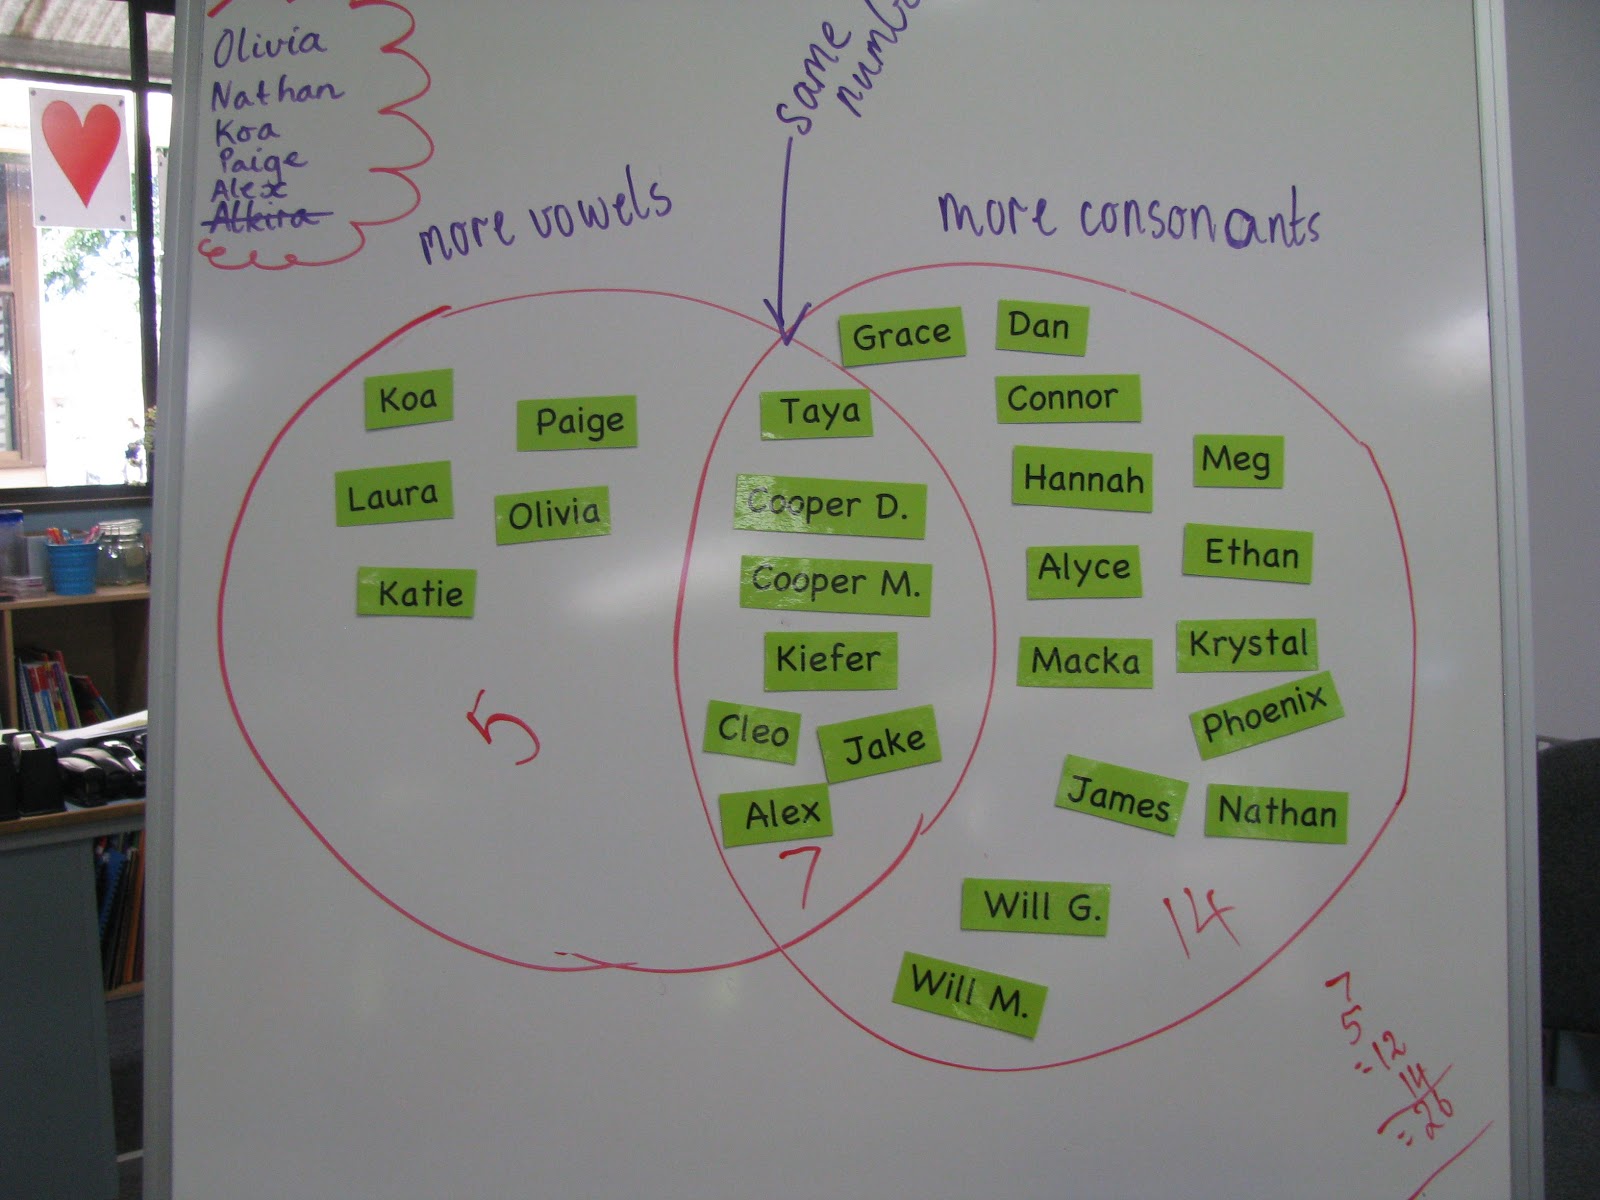 Olivia
Nathan
Koa
Paige
Alex
Alkira
same
more vowels
more consonants
Grace
Dan
Koa
Paige
Taya
Connor
Laura
Olivia
Cooper D.
Hannah
Meg
Katie
Cooper M.
Alyce
Ethan
Kiefer
Macka
Krystal
Cleo
Jake
Phoenix
Alex
James
Nathan
5
7
Will G.
14
Will M.
7
5
=12
14
=26